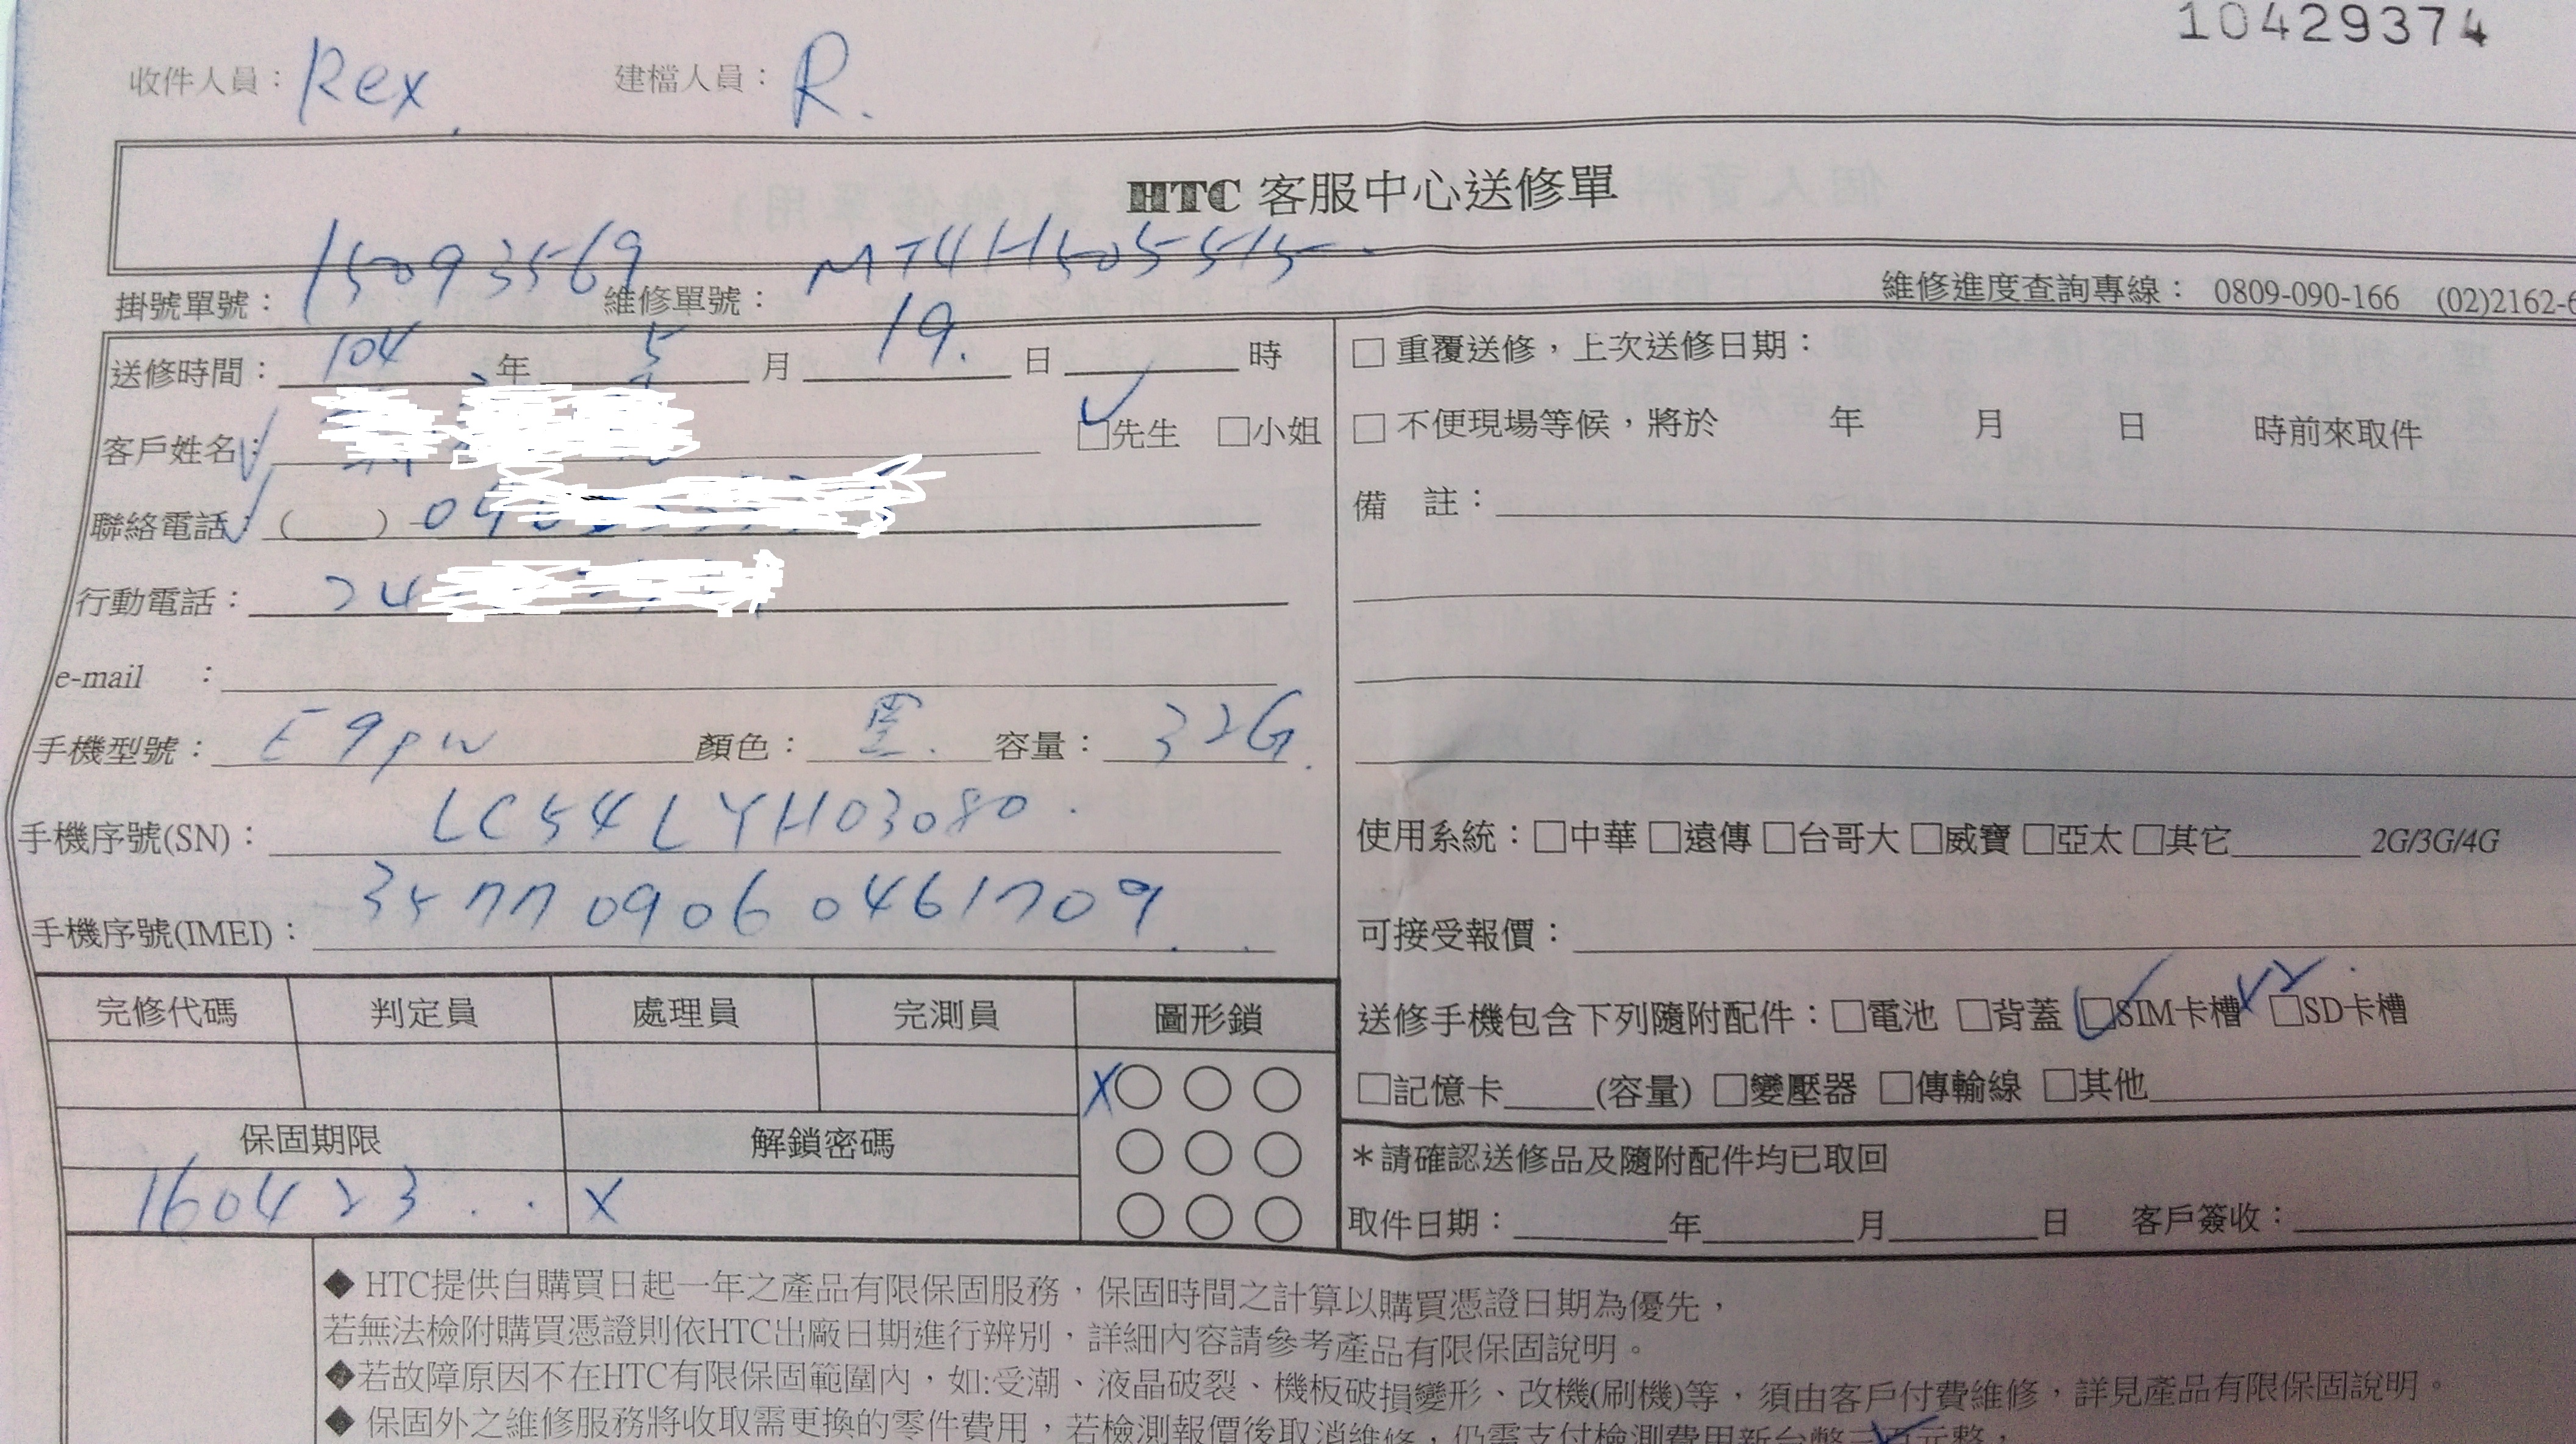 10429374
收件人員： Rex. 建檔人員： R.
HTC 客服中心送修單
掛號單號： 15093569 維修單號： MT4H505515 維修進度查詢專線： 0809-090-166 (02)2162-6
送修時間： 104 年 5 月 19. 日 時
客戶姓名： □先生 □小姐
聯絡電話： ( ) 09
行動電話： 24
e-mail ：
手機型號： E9pw 顏色： 黑. 容量： 32G.
手機序號(SN)： LC54LYH03080.
手機序號(IMEI)： 357709060461709.
完修代碼 判定員 處理員 完測員 圖形鎖
X
保固期限 解鎖密碼
160423.. X
□ 重覆送修，上次送修日期：
□ 不便現場等候，將於 年 月 日 時前來取件
備 註：
使用系統：□中華 □遠傳 □台哥大 □威寶 □亞太 □其它 2G/3G/4G
可接受報價：
送修手機包含下列隨附配件：□電池 □背蓋 □SIM卡槽 x2. □SD卡槽
□記憶卡____(容量) □變壓器 □傳輸線 □其他
＊請確認送修品及隨附配件均已取回
取件日期： 年 月 日 客戶簽收：
◆ HTC提供自購買日起一年之產品有限保固服務，保固時間之計算以購買憑證日期為優先，
若無法檢附購買憑證則依HTC出廠日期進行辨別，詳細內容請參考產品有限保固說明。
◆若故障原因不在HTC有限保固範圍內，如:受潮、液晶破裂、機板破損變形、改機(刷機)等，須由客戶付費維修，詳見產品有限保固說明。
◆ 保固外之維修服務將收取需更換的零件費用，若檢測報價後取消維修，仍需支付檢測費用新台幣三百元整，